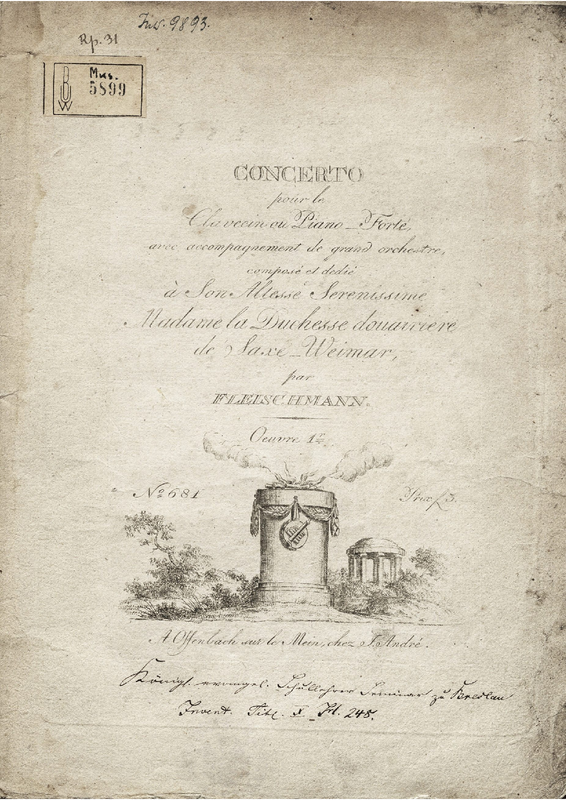 Inv. 9893.
Rp. 31
BUW
Mus.
5899
CONCERTO
pour le
Clavecin ou Piano_Forté,
avec accompagnement de grand orchestre,
composé et dedié
à Son Altesse Serenissime
Madame la Duchesse douairiere
de Saxe_Weimar,
par
FLEISCHMANN.
Oeuvre 1.
No 681
Prix f 3.
A Offenbach sur le Mein, chez J. André.
Königl. evangel. Schullehrer Seminar zu Breslau
Invent. Tit. X 248.